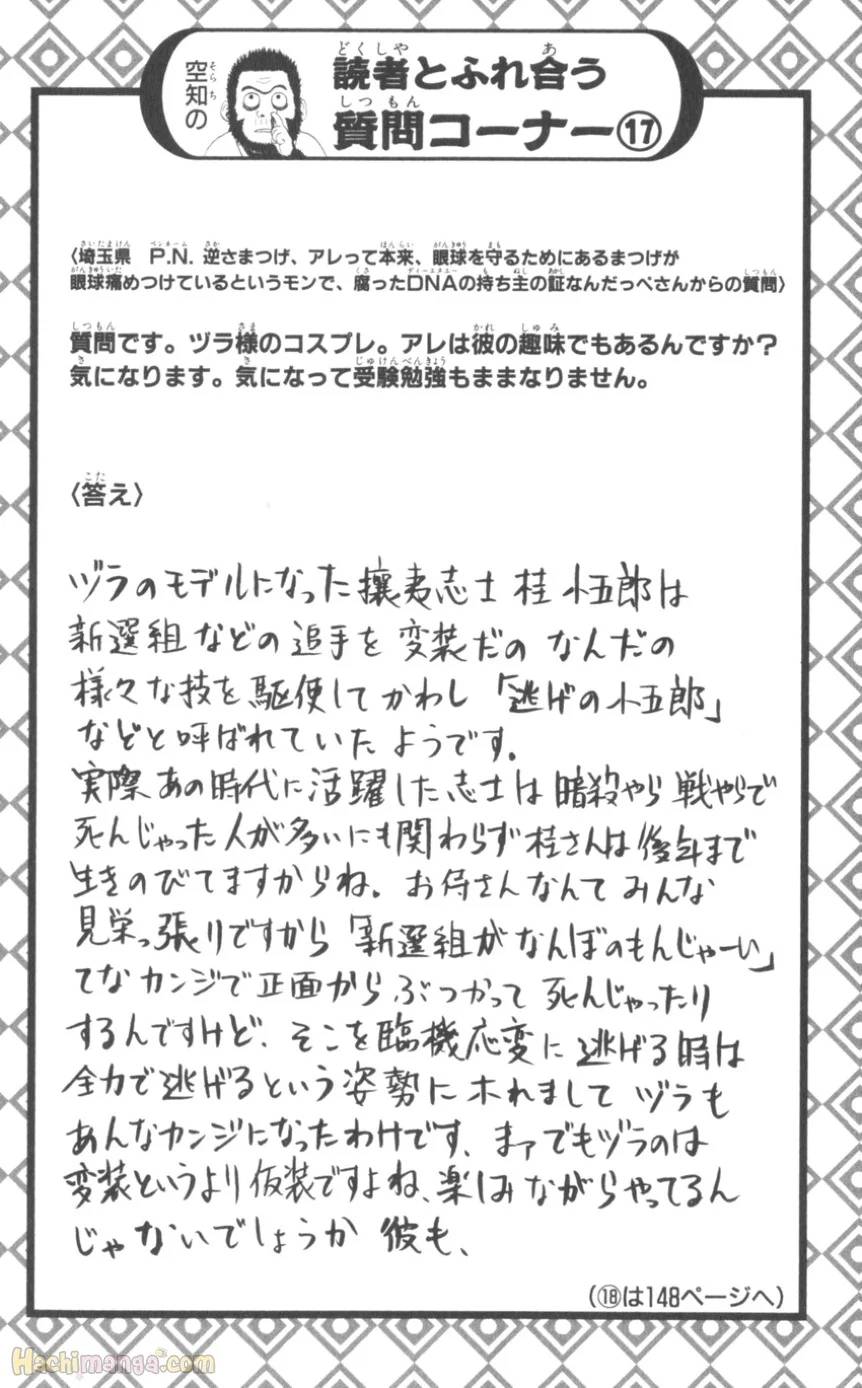 空知の
読者とふれ合う
質問コーナー⑰
〈埼玉県 P.N. 逆さまつげ、アレって本来、眼球を守るためにあるまつげが
眼球痛めつけているというモンで、腐ったDNAの持ち主の証なんだっぺさんからの質問〉
質問です。ヅラ様のコスプレ。アレは彼の趣味でもあるんですか?
気になります。気になって受験勉強もままなりません。
〈答え〉
ヅラのモデルになった攘夷志士 桂 小五郎は
新選組などの追手を変装だの なんだの
様々な技を駆使して かわし 「逃げの小五郎」
などと呼ばれていた ようです。
実際あの時代に活躍した志士は 暗殺やら 戦やらで
死んじゃった人が多いにも関わらず桂さんは後年まで
生きのびてますからね。お侍さんなんて みんな
見栄っ張りですから「新選組がなんぼのもんじゃーい」
てなカンジで正面から ぶつかって 死んじゃったり
するんですけど、そこを臨機応変に逃げる時は
全力で逃げるという姿勢にホれまして ヅラも
あんなカンジになったわけです、まァでもヅラのは
変装というより仮装ですよね、楽しみながらやってるん
じゃないでしょうか 彼も、
(⑱は148ページへ)
Hachimanga.com